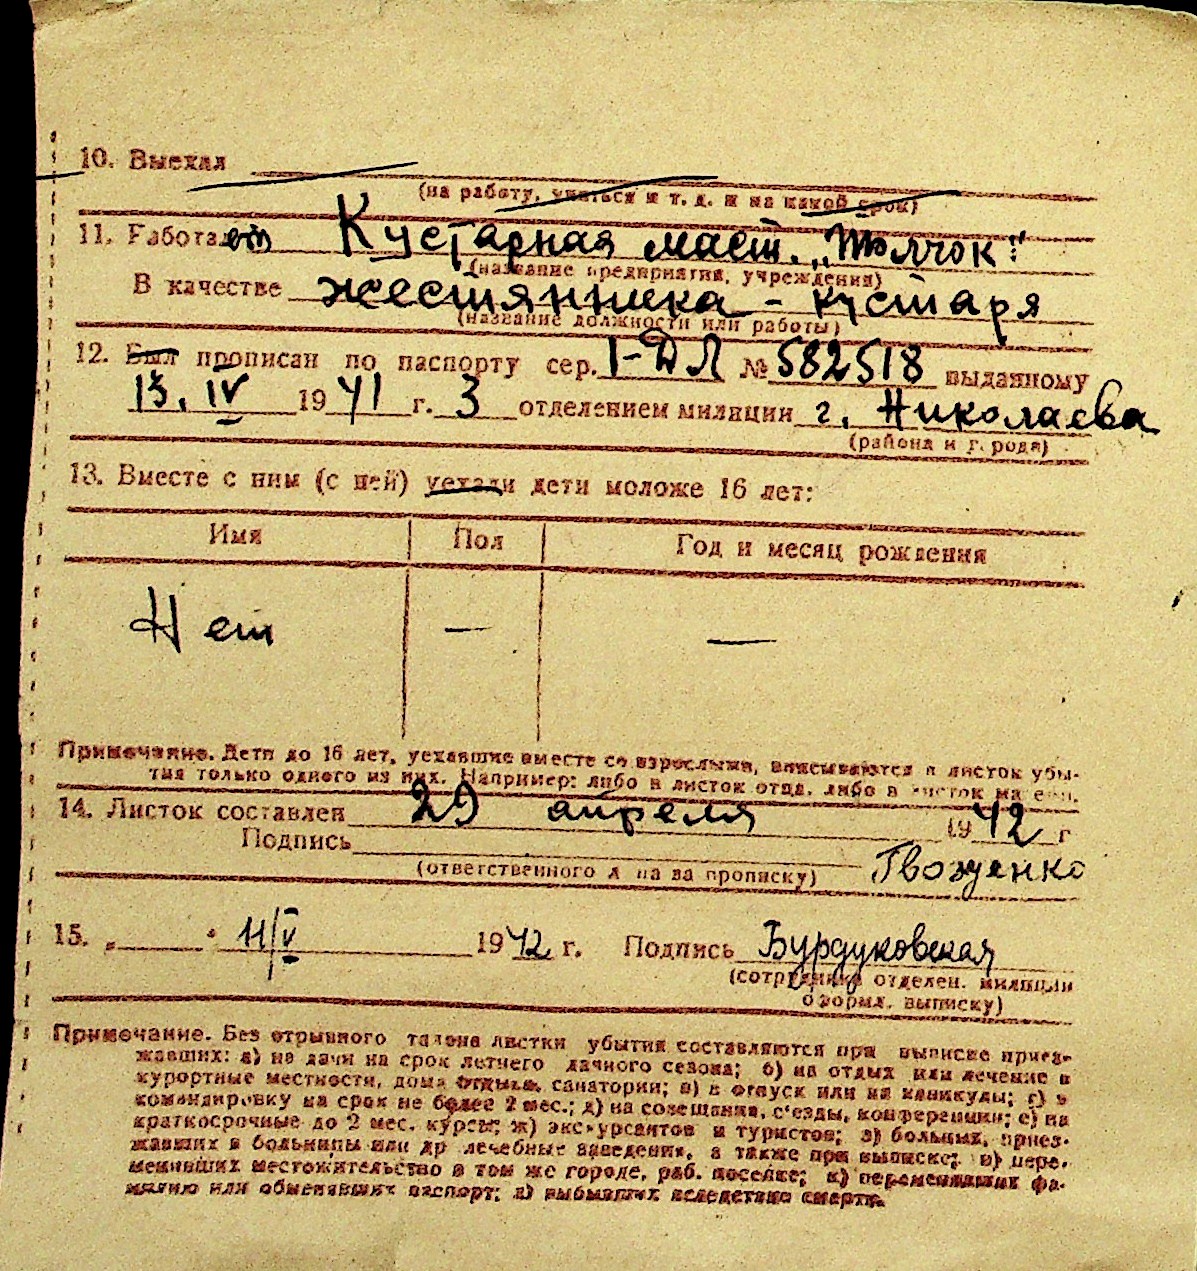 10. Выехал
(на работу, учиться и т. д. и на какой срок)
11. Работает Кустарная маст. „Толчок"
(название предприятия, учреждения)
В качестве жестянника - кустаря
(название должности или работы)
12. Был прописан по паспорту сер. I-ДЛ № 582518 выданному
13. IV 1941 г. 3 отделением милиции г. Николаева
(района и города)
13. Вместе с ним (с ней) уехали дети моложе 16 лет:
Имя Пол Год и месяц рождения
Нет — —
Примечание. Дети до 16 лет, уехавшие вместе со взрослыми, вписываются в листок убы-
тия только одного из них. Например: либо в листок отца, либо в листок матери.
14. Листок составлен 29 апреля 1942 г
Подпись
(ответственного за прописку) Гвозденко
15. „ " 11/V 1942 г. Подпись Бурдуковская
(сотрудника отделен. милиции
оформл. выписку)
Примечание. Без отрывного талона листки убытия составляются при выписке приез-
жавших: а) на дачи на срок летнего дачного сезона; б) на отдых или лечение в
курортные местности, дома отдыха, санатории; в) в отпуск или на каникулы; г) в
командировку на срок не более 2 мес.; д) на совещания, с'езды, конференции; е) на
краткосрочные до 2 мес. курсы; ж) экскурсантов и туристов; з) больных, приез-
жавших в больницы или др лечебные заведения, а также при выписке; и) пере-
менивших местожительство в том же городе, раб. поселке; к) переменивших фа-
милию или обменявших паспорт; л) выбывших вследствие смерти.